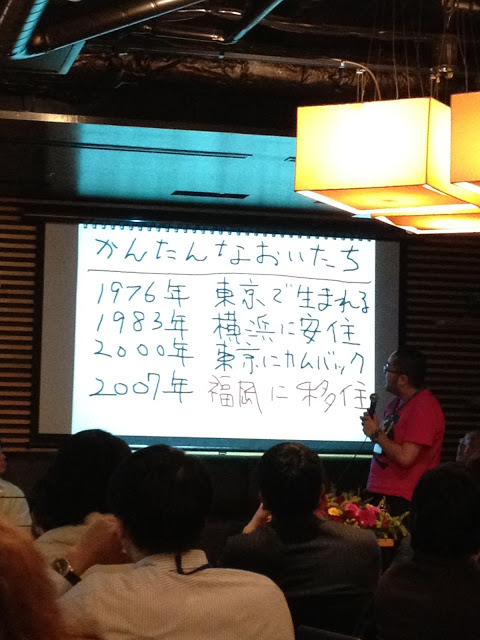 かんたんなおいたち
1976年 東京で生まれる
1983年 横浜に安住
2000年 東京にカムバック
2007年 福岡に移住